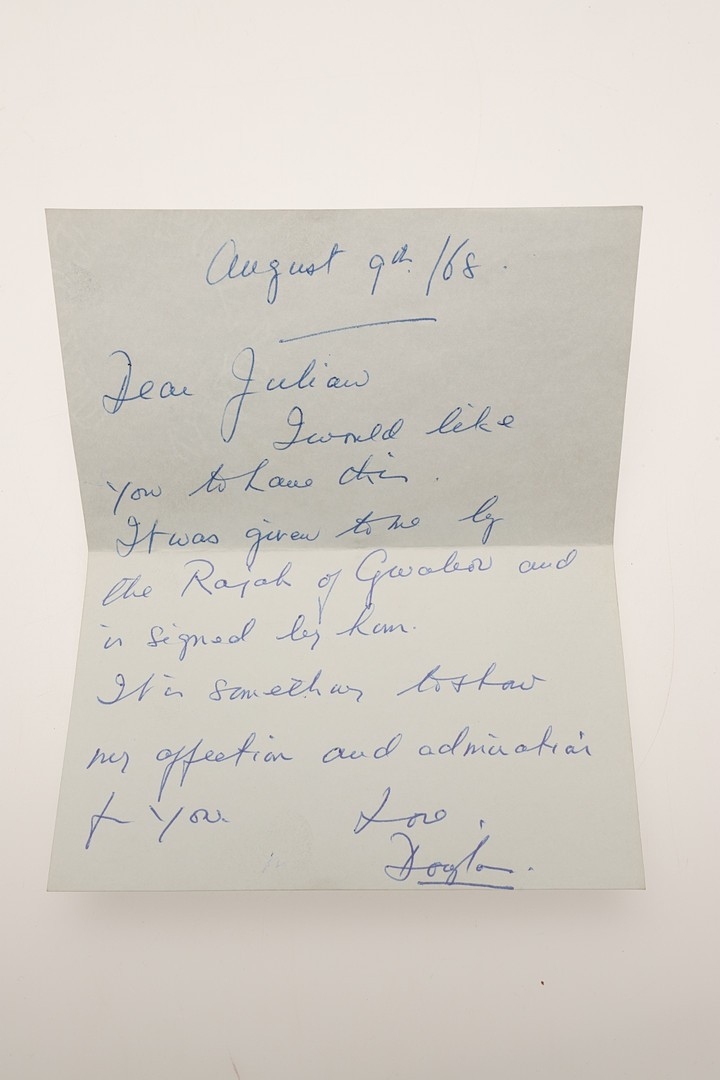 August 9th /68.
Dear Julian
I would like
You to have this.
It was given to me by
the Rajah of Gwalior and
is signed by him.
It is something to show
my affection and admiration
for You. Love,
Douglas.